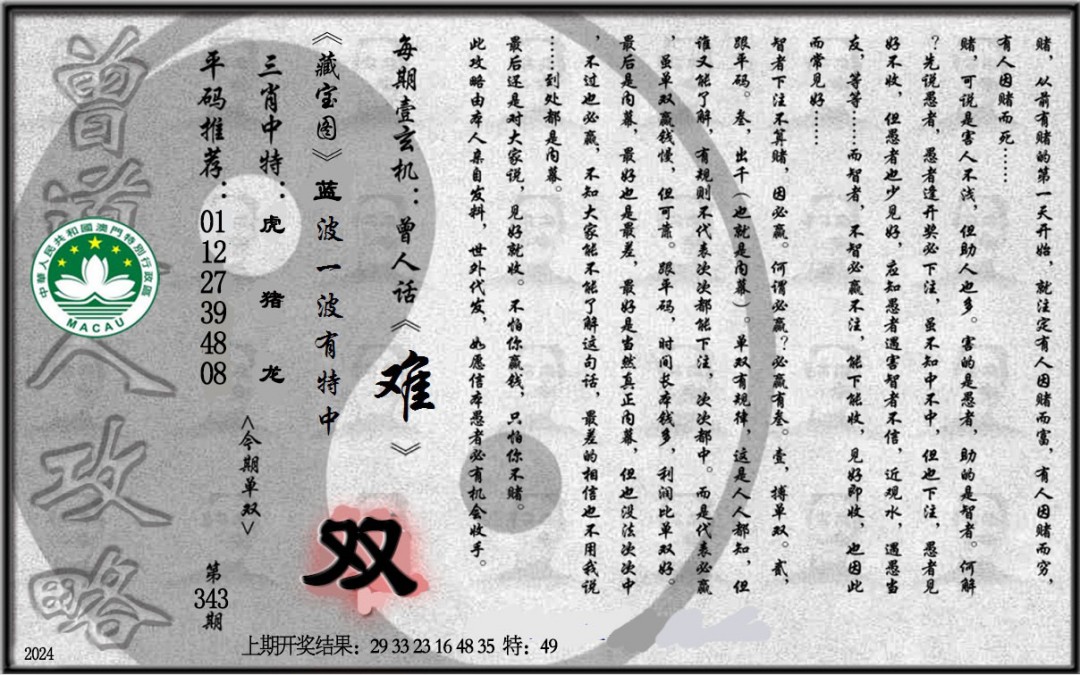 赌，从前有赌的第一天开始，就注定有人因赌而富，有人因赌而穷，
有人因赌而死……
赌，可说是害人不浅，但助人也多。害的是愚者，助的是智者。何解
？先说愚者，愚者逢开奖必下注，虽不知中不中，但也下注，愚者见
好不收，但愚者也少见好，应知愚者遇害智者不信，近观水，遇愚当
友，等等……而智者，不智必赢不注，能下能收，见好即收，也因此
而常见好……
智者下注不算赌，因必赢。何谓必赢？必赢有叁。壹，搏单双。贰，
跟平码。叁，出千（也就是内幕）。单双有规律，这是人人都知，但
谁又能了解，有规则不代表次次都能下注，次次都中。而是代表必赢
，虽单双赢钱慢，但可靠。跟平码，时间长本钱多，利润比单双好。
最后是内幕，最好也是最差，最好是当然真正内幕，但也没法次次中
，不过也必赢，不知大家能不能了解这句话，最差的相信也不用我说
……到处都是内幕。
最后还是对大家说，见好就收。不怕你赢钱，只怕你不赌。
此攻略由本人亲自发料，世外代发，如愿信本愚者必有机会收手。
每期壹玄机：曾人话《难》
《藏宝图》蓝波一波有特中
双
三肖中特：虎 猪 龙
<今期单双>
平码推荐：01 12 27 39 48 08
第343期
曾道人攻略
中華人民共和國澳門特別行政區
MACAU
上期开奖结果：29 33 23 16 48 35 特：49
2024